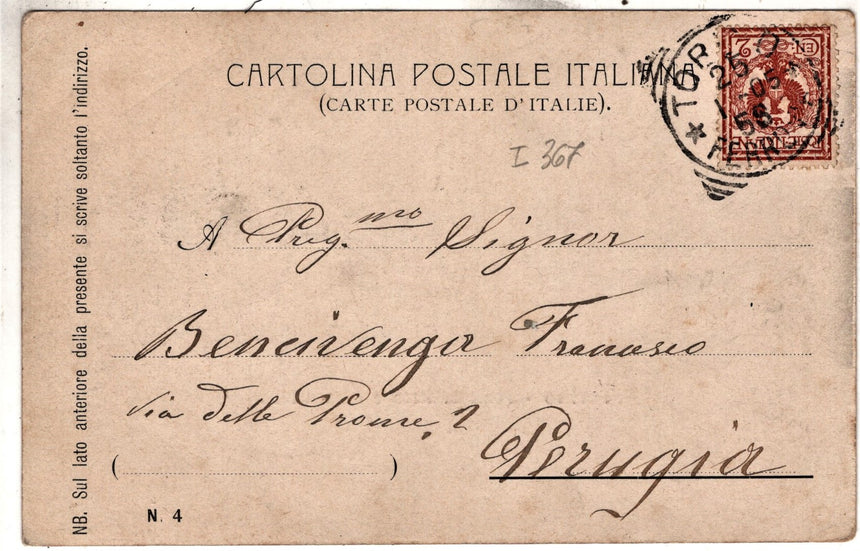 CARTOLINA POSTALE ITALIANA
(CARTE POSTALE D'ITALIE).
I 367
A Preg.mo Signor
Bencivenga Francesco
via delle Prome. 2
Perugia
( )
N. 4
NB. Sul lato anteriore della presente si scrive soltanto l'indirizzo.
TORINO
25
58
2